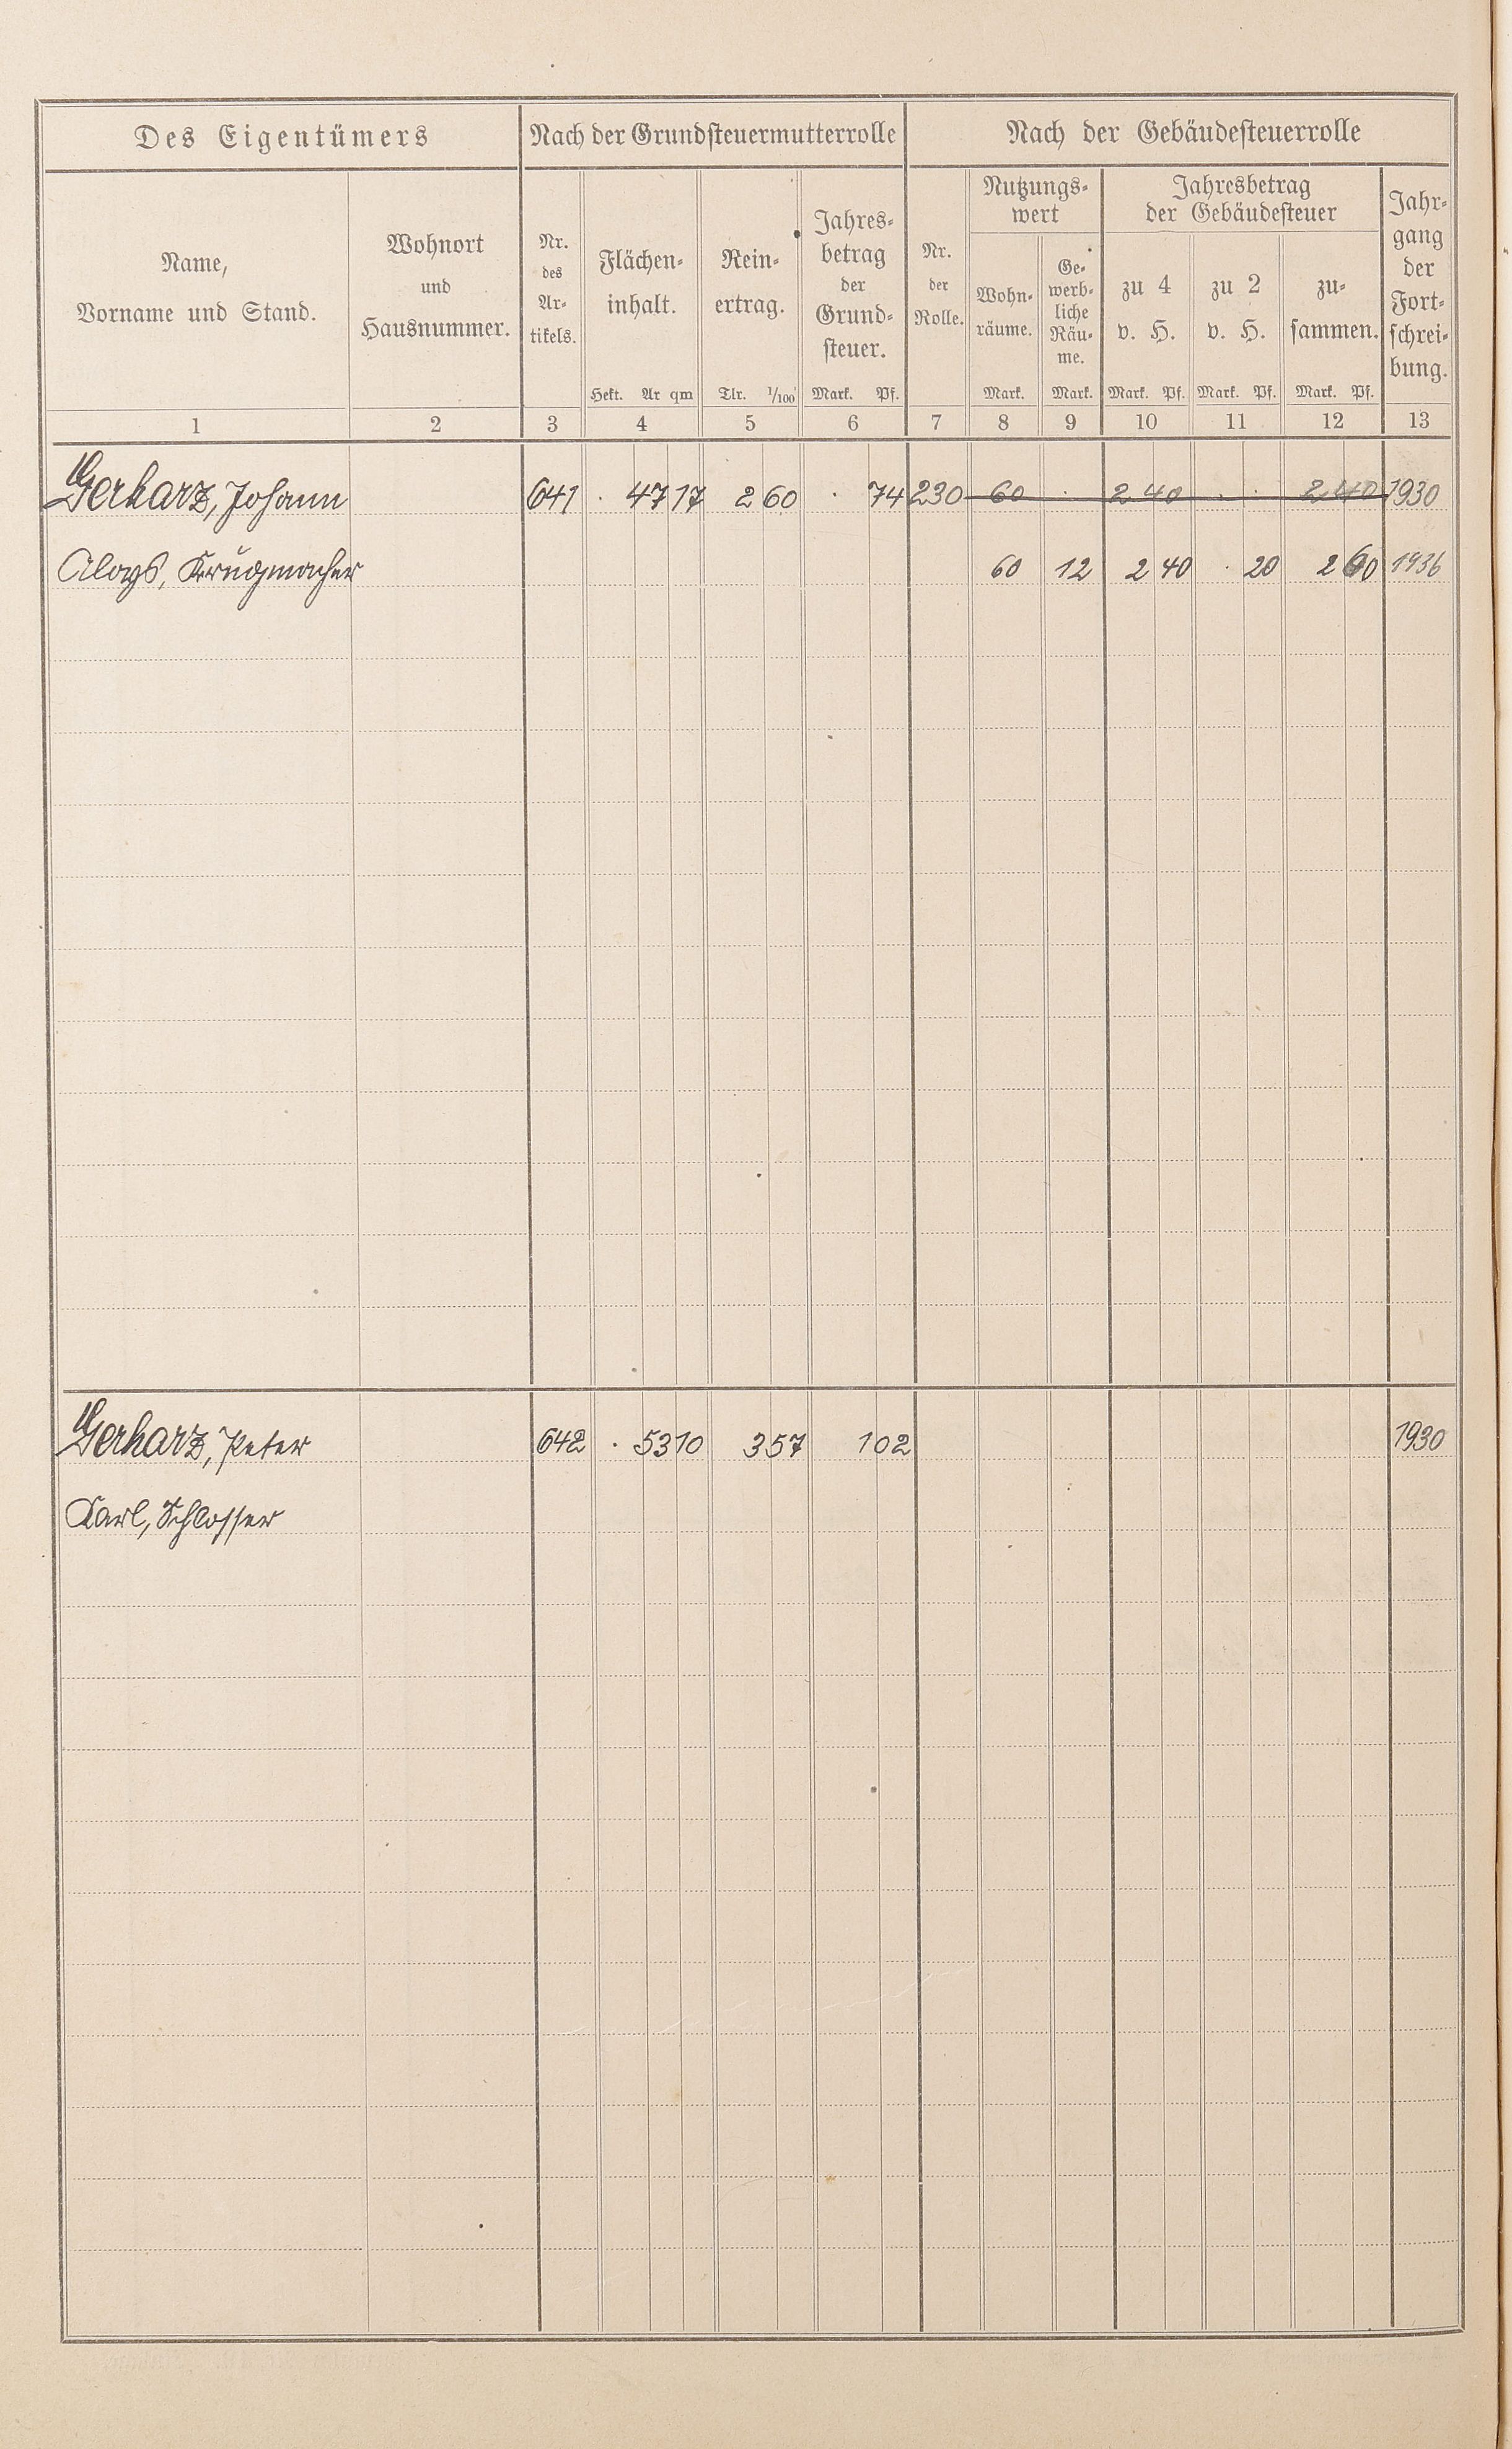 Des Eigentümers Nach der Grundsteuermutterrolle Nach der Gebäudesteuerrolle
Name,
Vorname und Stand.
Wohnort
und
Hausnummer.
Nr.
des
Ar-
tikels.
Flächen-
inhalt.
Hekt. Ar qm
Rein-
ertrag.
Tlr. 1/100
Jahres-
betrag
der
Grund-
steuer.
Mark. Pf.
Nr.
der
Rolle.
Nutzungs-
wert
Wohn-
räume.
Mark.
Ge-
werb-
liche
Räu-
me.
Mark.
Jahresbetrag
der Gebäudesteuer
zu 4
v. H.
Mark. Pf.
zu 2
v. H.
Mark. Pf.
zu-
sammen.
Mark. Pf.
Jahr-
gang
der
Fort-
schrei-
bung.
1 2 3 4 5 6 7 8 9 10 11 12 13
Gerharz, Johann 641 . 47 17 2 60 . 74 230 60 . 2 40 . . 2 40 1930
Aloys, Krugmacher 60 12 2 40 . 20 2 60 1936
Gerharz, Peter 642 . 53 10 3 57 1 02 1930
Karl, Schlosser